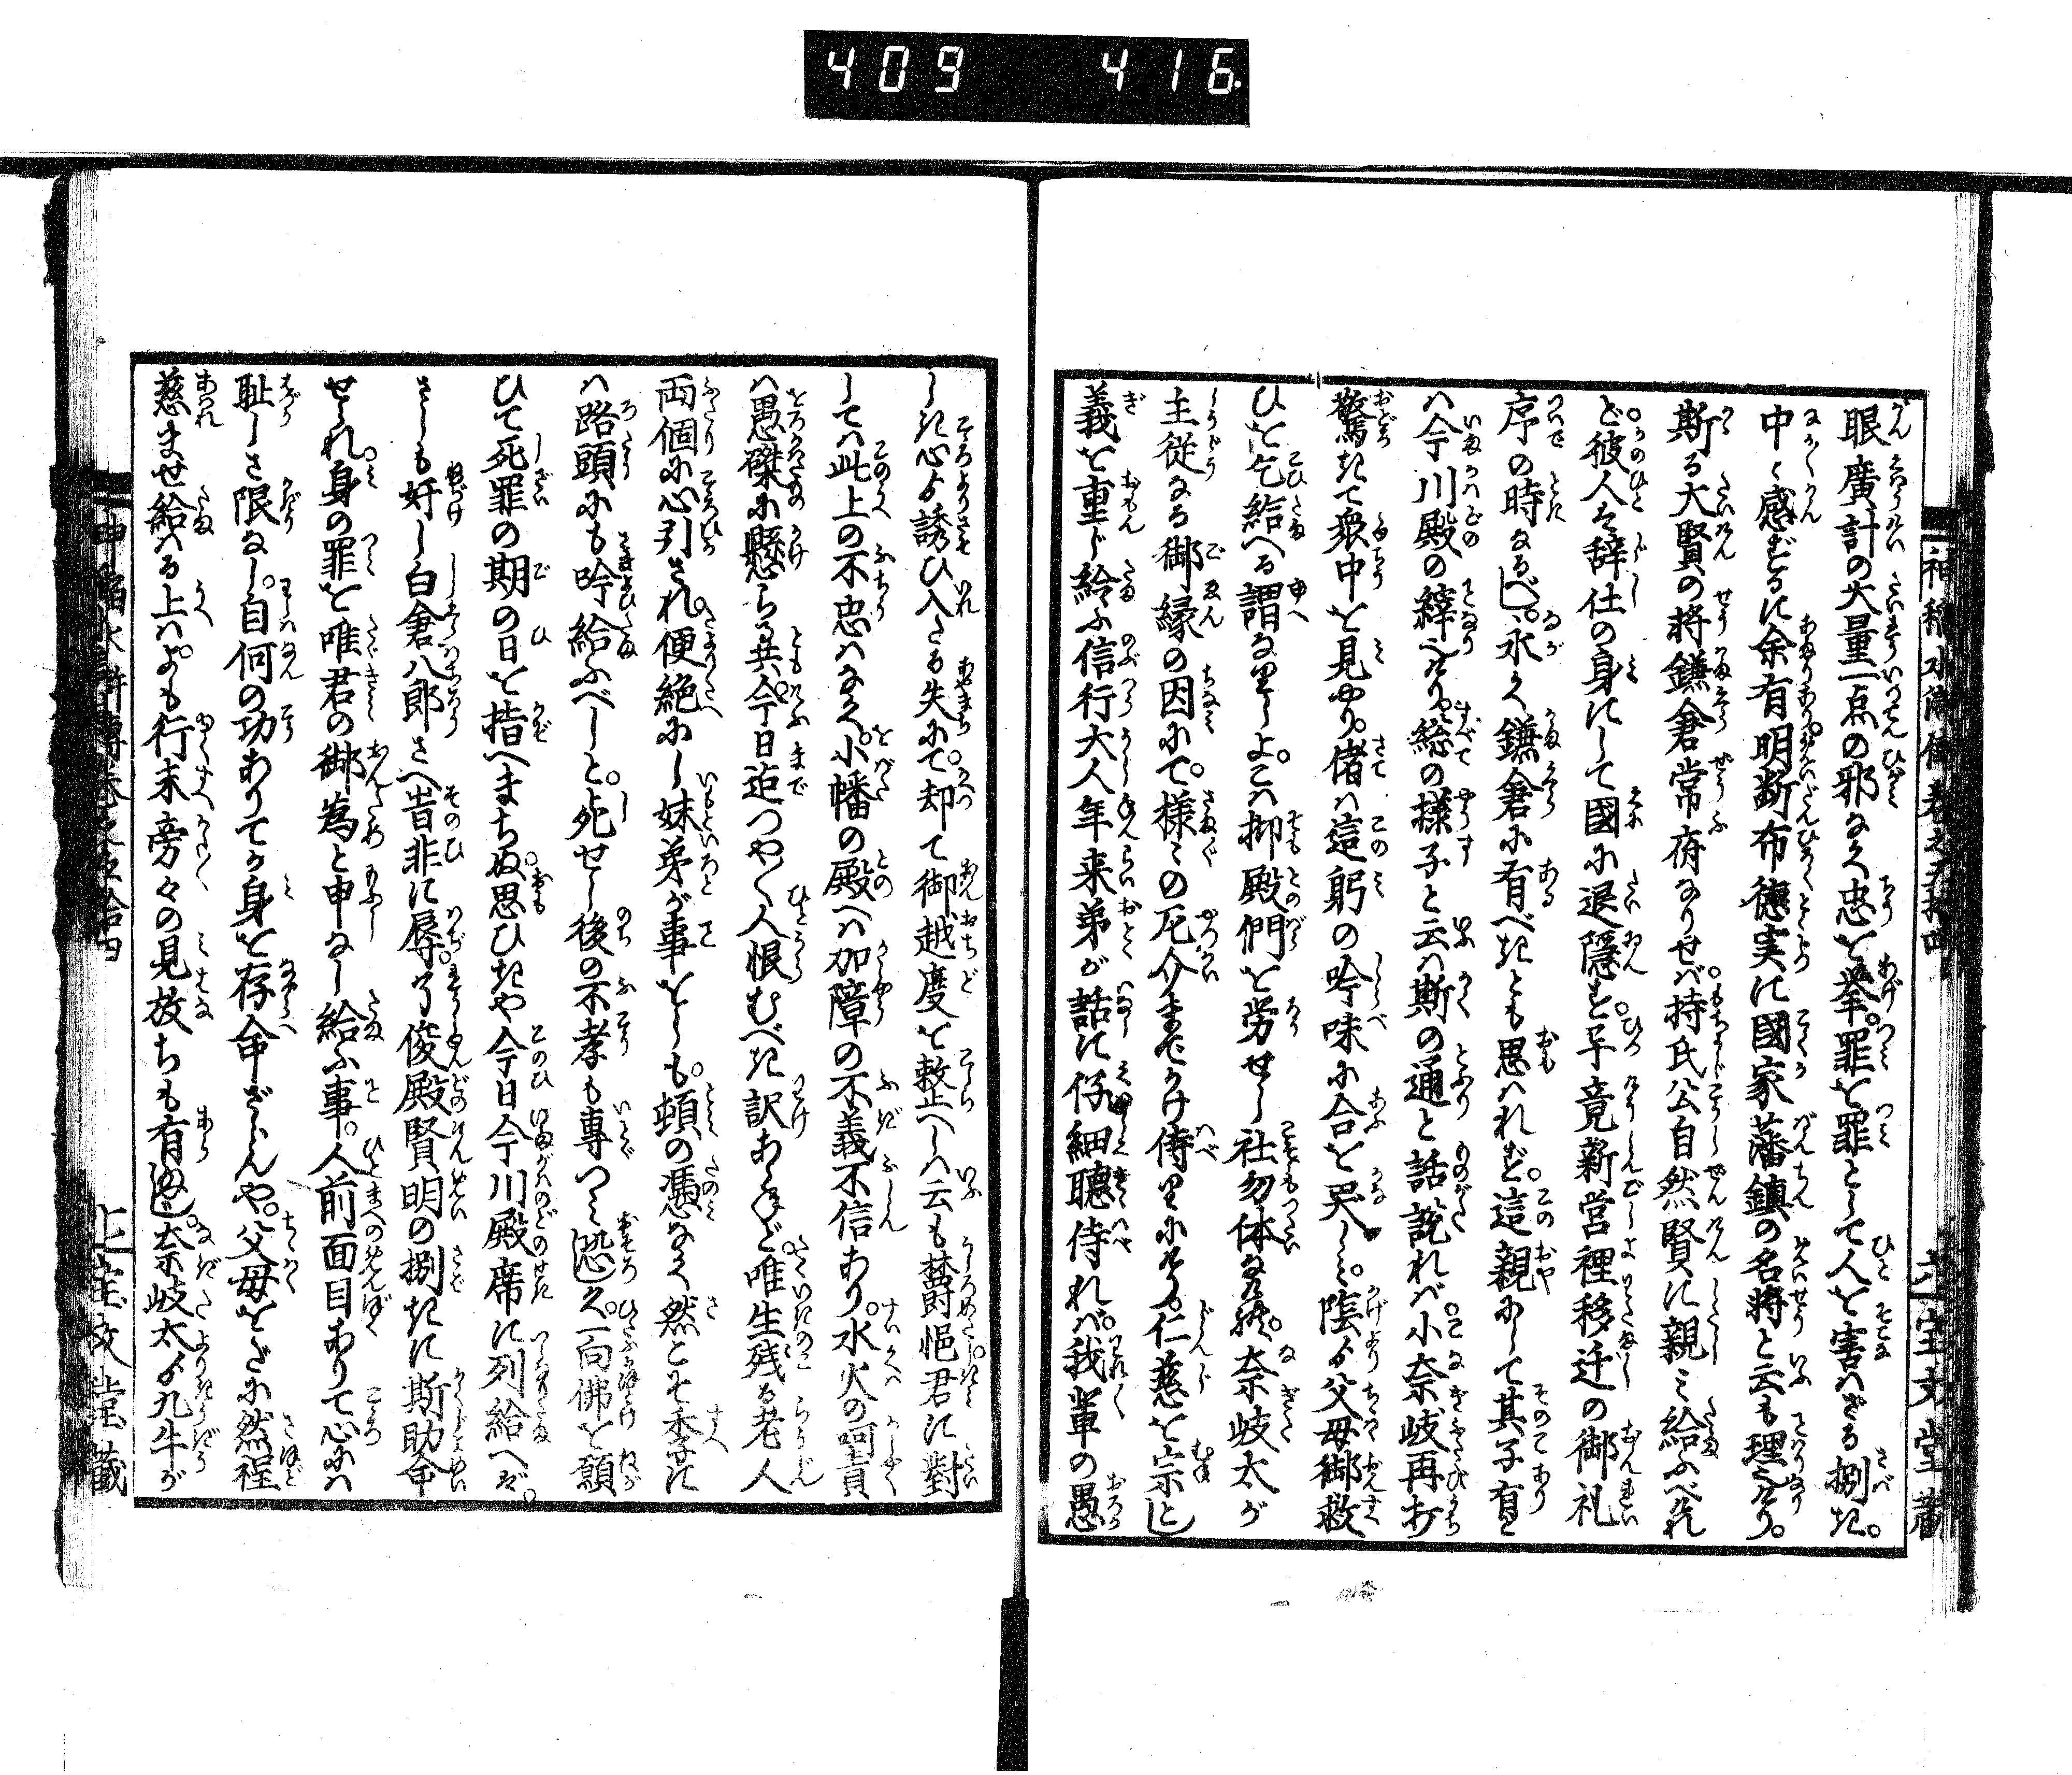 409 416
眼廣計の大量一点の邪なく忠を挙。罪を罪として人を害はざる捌き。
中く感ずるに余有明断布徳実に國家藩鎮の名将と云も理なり。
斯る大賢の将鎌倉常府なりせば。持氏公自然賢に親ミ給ふべけれ
ど。彼人は辞仕の身にして國に退隠す。畢竟新営裡移迁の御礼
序の時なるべし。永く鎌倉に有べきとも思はれず。這親にして其子有と
ハ今川殿の繹へなり。総の様子と云ハ斯の通と話説れバ。小奈岐再打
驚きて衆中を見やり。偖ハ這躬の吟味に合を哭しミ。陰より父母御救
ひを乞給へる謂なりしよ。こハ抑殿門を労せし社勿体なけれ。奈岐太が
主従なる御縁の因にて。様ミの厄介まだかけ侍りにけり。仁慈を宗とし
義を重じ給ふ信行大人年来弟が話に仔細聴侍れバ。我輩の愚
しき心より誘ひ入たる失にて。却て御越度を整へしハ云も慙愧君に對
してハ此上の不忠ハなく。小幡の殿へハ加障の不義不信あり。水火の呵責
ハ愚磔に懸らる共。今日迄つやく人恨むべき訳あらねど。唯生残る老人
両個に心引され。便絶にし妹弟が事をしも。頓の憑なく然こそ季に
ハ路頭にも吟給ふべしと。死せし後の不孝も專つミ恐し。一向佛を願
ひて死罪の期の日を指へまちぬ。思ひきや今日今川殿席に列給へば。
さしも奸し白倉八郎さへ昔非に辱。了俊殿賢明の捌きに斯助命
せられ。身の罪を唯君の御為と申なし給ふ事。人前面目ありて心にハ
耻しさ限なし。自何の功ありてか身を存命ざらんや。父母をだに然程
慈ませ給はる上ハ。よも行末旁々の見放ちも有まじ。奈岐太より九牛が